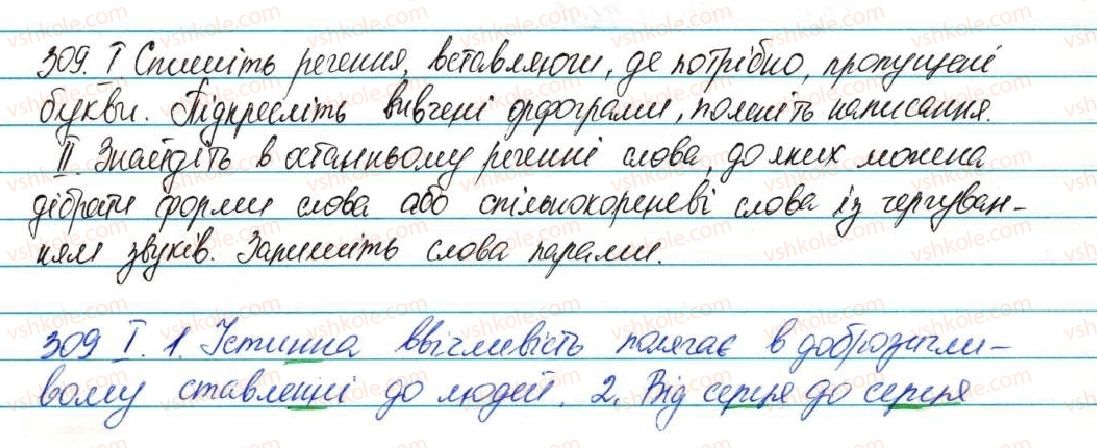 309. I Спишіть речення, вставляючи, де потрібно, пропущені
букви. Підкресліть вивчені орфограми, поясніть написання.
II. Знайдіть в останньому реченні слова, до яких можна
дібрати форми слова або спільнокореневі слова із чергуван-
ням звуків. Запишіть слова парами.
309 I. 1. Істинна ввічливість полягає в доброзичли-
вому ставленні до людей. 2. Від серця до серця